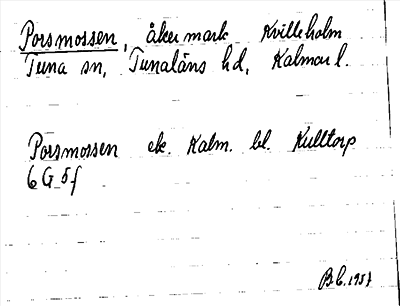 Porsmossen, åkermark Kvilleholm
Tuna sn, Tunaläns hd, Kalmar l.
Porsmossen ek. Kalm. bl. Kulltorp
6G5f
B.C. 1957